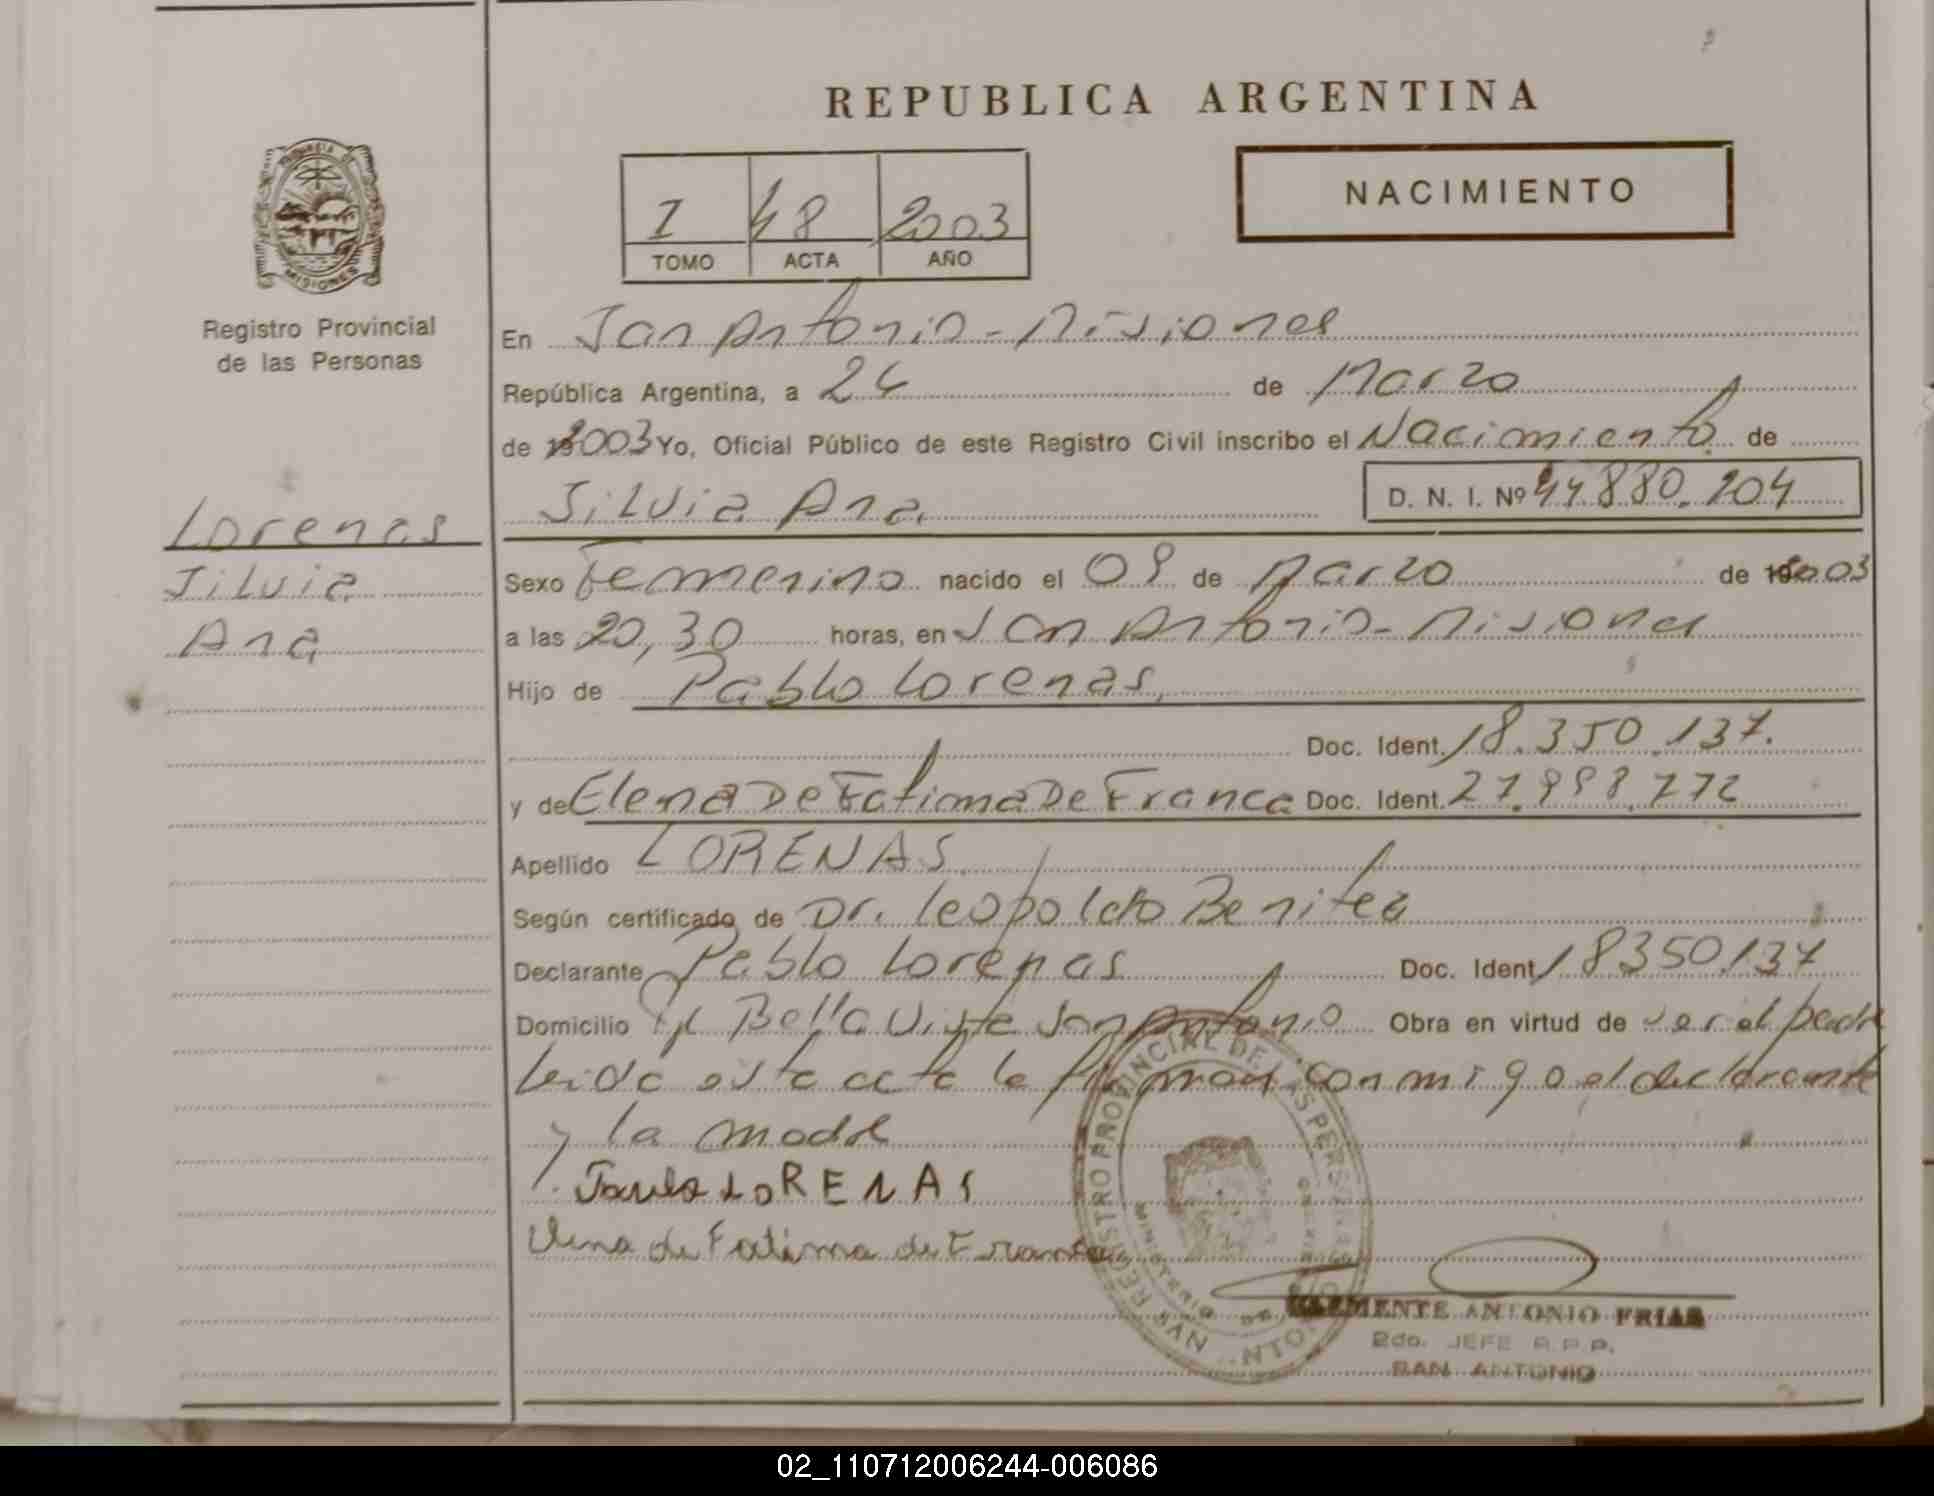 REPUBLICA ARGENTINA
PROVINCIA DE
MISIONES
Registro Provincial
de las Personas
I 48 2003
TOMO ACTA AÑO
NACIMIENTO
En San Antonio - Misiones
República Argentina, a 24 de Marzo
de 2003 Yo, Oficial Público de este Registro Civil inscribo el Nacimiento de
Silvia Ana D. N. I. Nº 44.880.204
Lorenas
Silvia
Ana
Sexo Femenino nacido el 09 de Marzo de 2003
a las 20,30 horas, en San Antonio - Misiones
Hijo de Pablo Lorenas,
Doc. Ident. 18.350.137.
y de Elena De Fatima De Franca Doc. Ident. 27.998.772
Apellido LORENAS
Según certificado de Dr. Leopoldo Benitez
Declarante Pablo Lorenas Doc. Ident 18350.137
Domicilio Bella Vista San Antonio Obra en virtud de ser el padre
Leida esta acta la firman conmigo el declarante
y la madre
LORENAS
Elena de Fatima de Franca
REGISTRO PROVINCIAL DE LAS PERSONAS
CLEMENTE ANTONIO FRIAS
Edo. JEFE R.P.P.
SAN ANTONIO
02_110712006244-006086